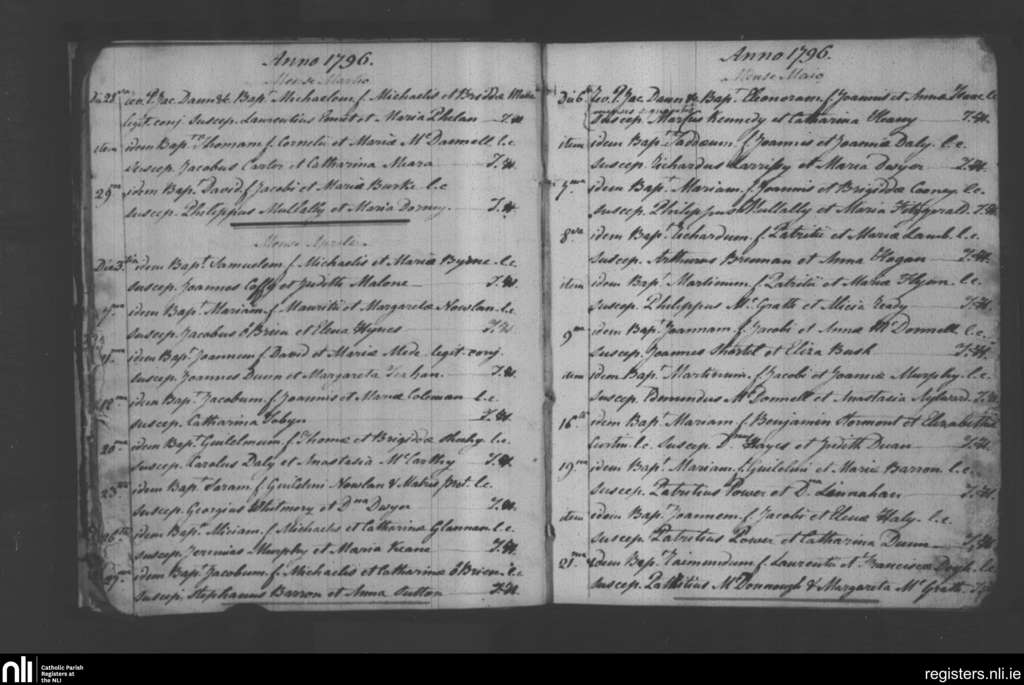 Anno 1796.
Mense Martio
Die 28 Rev. P. Jac. Daun &c. Bapt. Michaelem f. Michaelis et Brigidæ
legit. conj. Suscep. Laurentius et Maria Phelan J.M.
item idem Bapt. Thomam f. Cornelii et Mariæ McDannell l.c.
Suscep. Jacobus Carter et Catharina Meara J.M.
29 idem Bapt. David f. Jacobi et Mariæ Burke l.c.
Suscep. Philippus Mullally et Maria J.M.
Mense Aprile
Die 3 idem Bapt. Samuelem f. Michaelis et Mariæ Byrne l.c.
Suscep. Joannes Coffy et Judith Malone J.M.
7 idem Bapt. Mariam f. Mauritii et Margaretæ Nowlan l.c.
Suscep. Jacobus O'Brien et Elena Hynes J.M.
idem Bapt. Joannem f. David et Mariæ Mede legit. conj.
Suscep. Joannes Dunn et Margareta J.M.
idem Bapt. Jacobum f. Joannis et Mariæ Coleman l.c.
suscep. Catharina Tobyn J.M.
20 idem Bapt. Guilelmum f. Thomæ et Brigidæ Sheehy l.c.
Suscep. Carolus Daly et Anastasia McCarthy J.M.
23 idem Bapt. Saram f. Guilelmi Nowlan & l.c.
Suscep. Georgius Whitmory et Dna Dwyer J.M.
26 idem Bapt. Miriam f. Michaelis et Catharinæ Glannan l.c.
Suscep. Jeremias Murphy et Maria Keane J.M.
27 idem Bapt. Jacobum f. Michaelis et Catharinæ O'Brien l.c.
Suscep. Stephanus Barron et Anna Sutton J.M.
Anno 1796.
Mense Maio
Die 6 Rev. P. Jac. Daun & Bapt. Eleonoram f. Joannis et Annæ l.c.
Suscep. Kennedy et Catharina Heany J.M.
item idem Bapt. Taddæum f. Joannis et Joannæ Daly l.c.
Suscep. Richardus Larrissy et Maria Dwyer J.M.
7 idem Bapt. Mariam f. Joannis et Brigidæ Cooney l.c.
Suscep. Philippus Mullally et Maria Fitzgerald J.M.
8 idem Bapt. Richardum f. Patritii et Mariæ Lamb l.c.
Suscep. Arthurus Brennan et Anna Hogan J.M.
item idem Bapt. Martinum f. Patritii et Mariæ Flynn l.c.
Suscep. Philippus McGrath et Alicia Ready J.M.
9 idem Bapt. Joannam f. Jacobi et Annæ McDonnell l.c.
Suscep. Joannes Shortel et Eliza Bush J.M.
item idem Bapt. Martinum f. Jacobi et Joannæ Murphy l.c.
Suscep. Edmundus McDonnell et Anastasia J.M.
16 idem Bapt. Mariam f. Benjamin Stormont et Elizabethæ
Curtin l.c. Suscep. Hayes et Judith Dwan J.M.
19 idem Bapt. Mariam f. Guilelmi et Mariæ Barron l.c.
Suscep. Patritius Power et Dna Linnahan J.M.
item idem Bapt. Joannem f. Jacobi et Elenæ Haly l.c.
Suscep. Patritius Power et Catharina Dunn J.M.
21 idem Bapt. Raimundum f. Laurentii et Franciscæ l.c.
Suscep. Patritius McDonnough & Margareta McGrath
nli Catholic Parish
Registers at
the NLI
registers.nli.ie